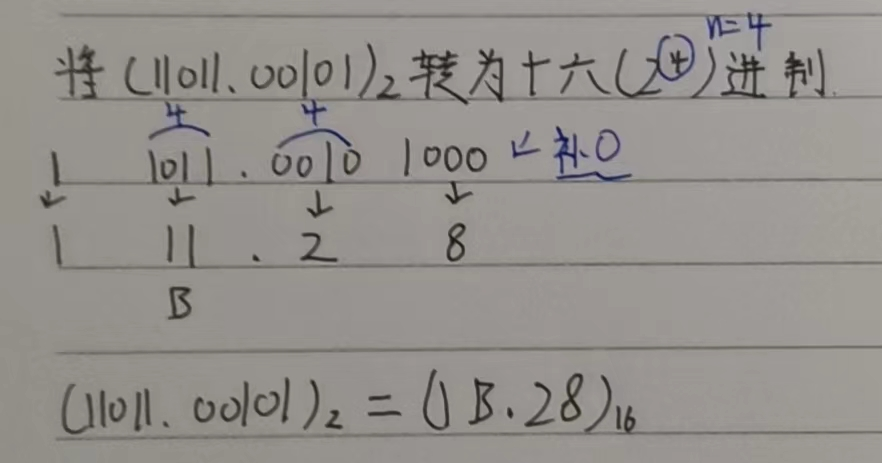 n=4
将(11011.00101)₂转为十六(2④)进制.
4 4
1 1011 . 0010 1000 ← 补0
↓ ↓ ↓ ↓
1 11 . 2 8
B
(11011.00101)₂ = (1B.28)₁₆